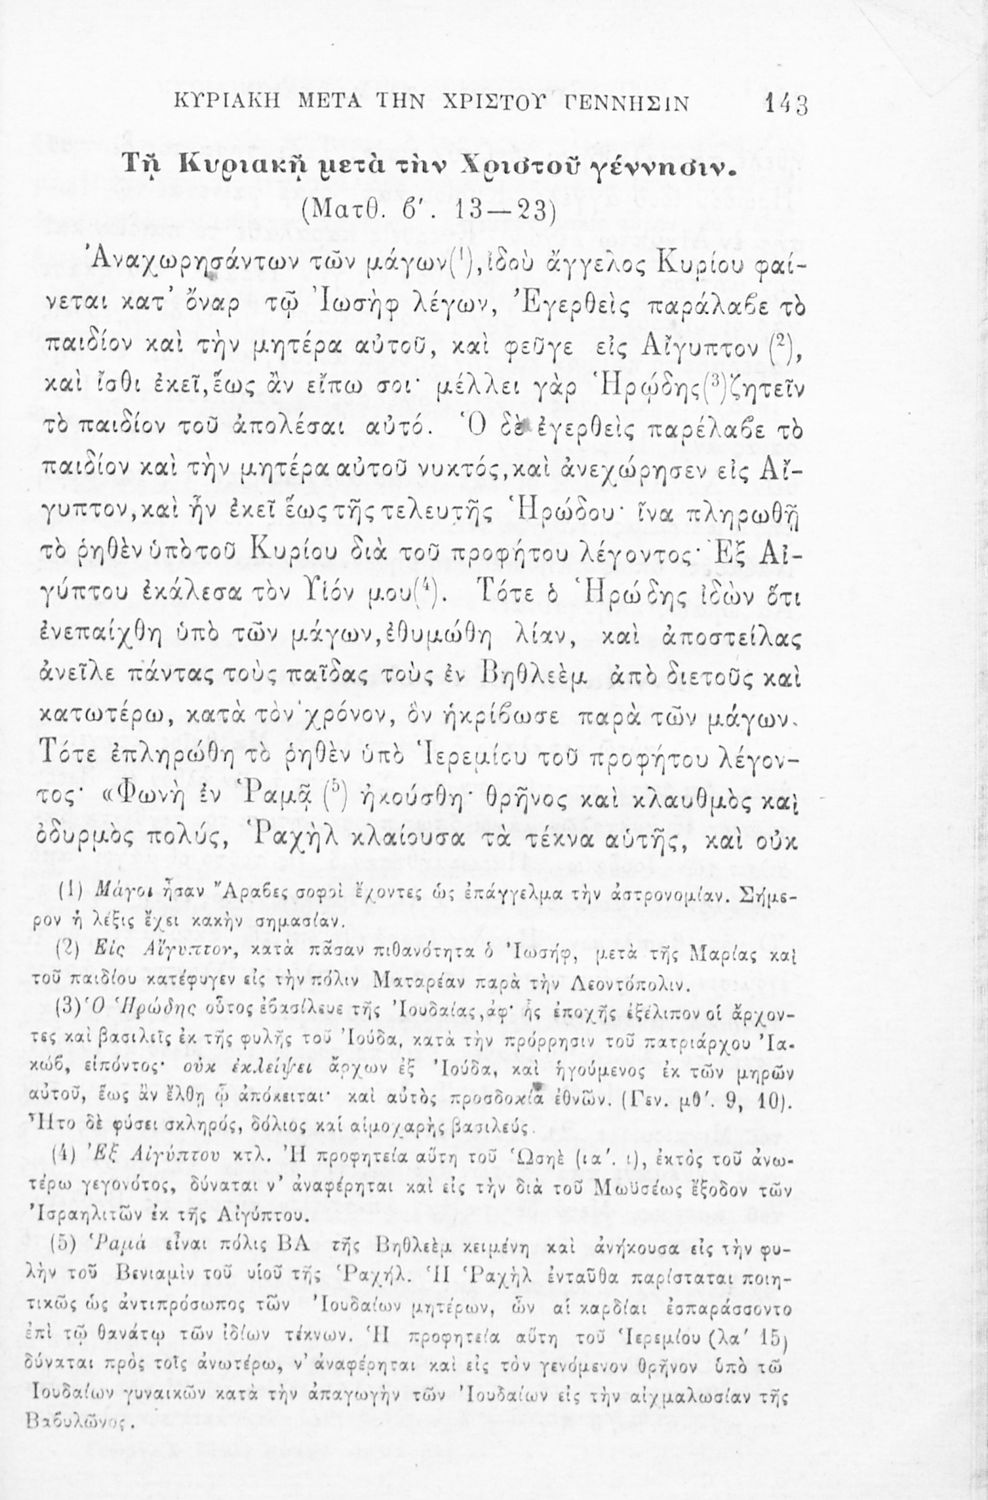 ΚΥΡΙΑΚΗ ΜΕΤΑ ΤΗΝ ΧΡΙΣΤΟΥ ΓΕΝΝΗΣΙΝ 143
Τῇ Κυριακῇ μετὰ τὴν Χριστοῦ γέννησιν.
(Ματθ. ϐʹ. 13—23)
Ἀναχωρησάντων τῶν μάγων(¹), ἰδοὺ ἄγγελος Κυρίου φαί-
νεται κατ᾽ ὄναρ τῷ Ἰωσὴφ λέγων, Ἐγερθεὶς παράλαϐε τὸ
παιδίον καὶ τὴν μητέρα αὐτοῦ, καὶ φεῦγε εἰς Αἴγυπτον (²),
καὶ ἴσθι ἐκεῖ, ἕως ἂν εἴπω σοι· μέλλει γὰρ Ἡρῴδης(³) ζητεῖν
τὸ παιδίον τοῦ ἀπολέσαι αὐτό. Ὁ δὲ ἐγερθεὶς παρέλαϐε τὸ
παιδίον καὶ τὴν μητέρα αὐτοῦ νυκτός, καὶ ἀνεχώρησεν εἰς Αἴ-
γυπτον, καὶ ἦν ἐκεῖ ἕως τῆς τελευτῆς Ἡρώδου· ἵνα πληρωθῇ
τὸ ῥηθὲν ὑπὸ τοῦ Κυρίου διὰ τοῦ προφήτου λέγοντος· Ἐξ Αἰ-
γύπτου ἐκάλεσα τὸν Υἱόν μου(⁴). Τότε ὁ Ἡρώδης ἰδὼν ὅτι
ἐνεπαίχθη ὑπὸ τῶν μάγων, ἐθυμώθη λίαν, καὶ ἀποστείλας
ἀνεῖλε πάντας τοὺς παῖδας τοὺς ἐν Βηθλεὲμ ἀπὸ διετοῦς καὶ
κατωτέρω, κατὰ τὸν χρόνον, ὃν ἠκρίϐωσε παρὰ τῶν μάγων.
Τότε ἐπληρώθη τὸ ῥηθὲν ὑπὸ Ἱερεμίου τοῦ προφήτου λέγον-
τος· «Φωνὴ ἐν Ῥαμᾷ (⁵) ἠκούσθη· θρῆνος καὶ κλαυθμὸς καὶ
ὀδυρμὸς πολύς, Ῥαχὴλ κλαίουσα τὰ τέκνα αὑτῆς, καὶ οὐκ
(1) Μάγοι ἦσαν Ἄραϐες σοφοὶ ἔχοντες ὡς ἐπάγγελμα τὴν ἀστρονομίαν. Σήμε-
ρον ἡ λέξις ἔχει κακὴν σημασίαν.
(2) Εἰς Αἴγυπτον, κατὰ πᾶσαν πιθανότητα ὁ Ἰωσήφ, μετὰ τῆς Μαρίας καὶ
τοῦ παιδίου κατέφυγεν εἰς τὴν πόλιν Ματαρέαν παρὰ τὴν Λεοντόπολιν.
(3) Ὁ Ἡρώδης οὗτος ἐϐασίλευε τῆς Ἰουδαίας, ἀφ᾽ ἧς ἐποχῆς ἐξέλιπον οἱ ἄρχον-
τες καὶ βασιλεῖς ἐκ τῆς φυλῆς τοῦ Ἰούδα, κατὰ τὴν πρόρρησιν τοῦ πατριάρχου Ἰα-
κώϐ, εἰπόντος· οὐκ ἐκλείψει ἄρχων ἐξ Ἰούδα, καὶ ἡγούμενος ἐκ τῶν μηρῶν
αὐτοῦ, ἕως ἂν ἔλθῃ ᾧ ἀπόκειται· καὶ αὐτὸς προσδοκία ἐθνῶν. (Γεν. μθʹ. 9, 10).
Ἦτο δὲ φύσει σκληρός, δόλιος καὶ αἱμοχαρὴς βασιλεύς.
(4) Ἐξ Αἰγύπτου κτλ. Ἡ προφητεία αὕτη τοῦ Ὡσηὲ (ιαʹ. ι), ἐκτὸς τοῦ ἀνω-
τέρω γεγονότος, δύναται ν᾽ ἀναφέρηται καὶ εἰς τὴν διὰ τοῦ Μωϋσέως ἔξοδον τῶν
Ἰσραηλιτῶν ἐκ τῆς Αἰγύπτου.
(5) Ῥαμὰ εἶναι πόλις ΒΑ τῆς Βηθλεὲμ κειμένη καὶ ἀνήκουσα εἰς τὴν φυ-
λὴν τοῦ Βενιαμὶν τοῦ υἱοῦ τῆς Ῥαχήλ. Ἡ Ῥαχὴλ ἐνταῦθα παρίσταται ποιη-
τικῶς ὡς ἀντιπρόσωπος τῶν Ἰουδαίων μητέρων, ὧν αἱ καρδίαι ἐσπαράσσοντο
ἐπὶ τῷ θανάτῳ τῶν ἰδίων τέκνων. Ἡ προφητεία αὕτη τοῦ Ἱερεμίου (λαʹ 15)
δύναται πρὸς τοῖς ἀνωτέρω, ν᾽ ἀναφέρηται καὶ εἰς τὸν γενόμενον θρῆνον ὑπὸ τῶ
Ἰουδαίων γυναικῶν κατὰ τὴν ἀπαγωγὴν τῶν Ἰουδαίων εἰς τὴν αἰχμαλωσίαν τῆς
Βαϐυλῶνος.